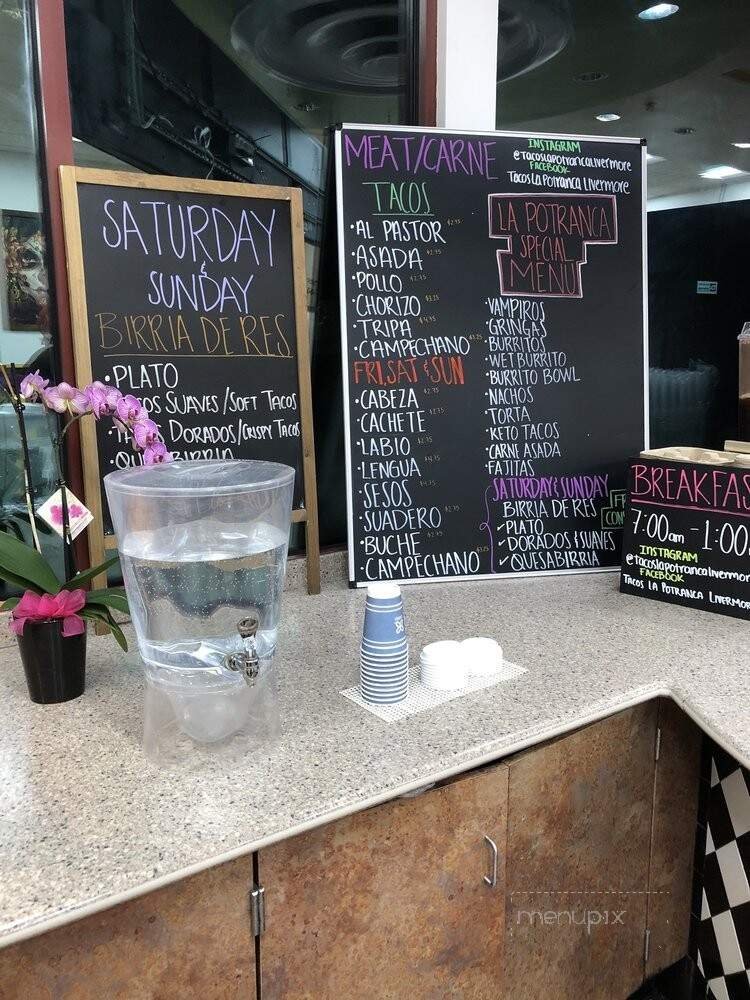 SATURDAY
&
SUNDAY
BIRRIA DE RES
•PLATO
SUAVES/SOFT TACOS
DORADOS/CRISPY TACOS
MEAT/CARNE
TACOS
•AL PASTOR $2.75
•ASADA $2.75
•POLLO $2.75
•CHORIZO
•TRIPA
•CAMPECHANO
FRI,SAT & SUN
•CABEZA
•CACHETE
•LABIO
•LENGUA
•SESOS
•SUADERO
•BUCHE
•CAMPECHANO
INSTAGRAM
@tacoslapotrancalivermore
FACEBOOK
Tacos La Potranca Livermore
LA POTRANCA
SPECIAL
MENU
•VAMPIROS
•GRINGAS
•BURRITOS
•WET BURRITO
•BURRITO BOWL
•NACHOS
•TORTA
•KETO TACOS
•CARNE ASADA
•FAJITAS
SATURDAY & SUNDAY
BIRRIA DE RES
✓PLATO
✓DORADOS & SUAVES
✓QUESABIRRIA
BREAKFAS
7:00am - 1:00
INSTAGRAM
@tacoslapotrancalivermor
FACEBOOK
Tacos La Potranca Livermor
menupix